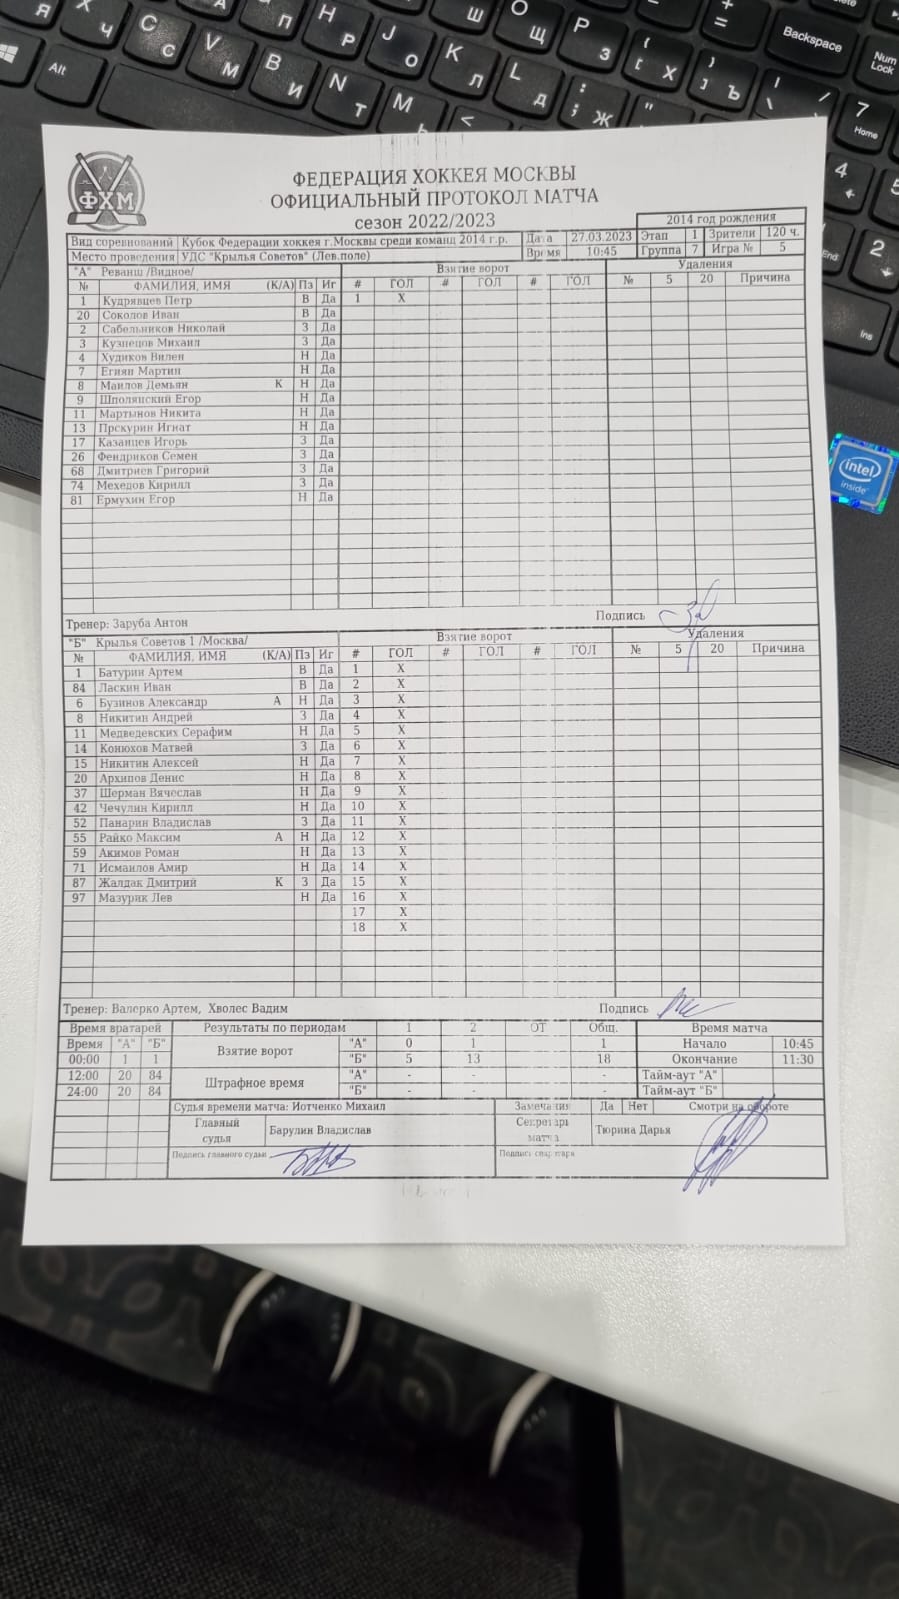 ФХМ
ФЕДЕРАЦИЯ ХОККЕЯ МОСКВЫ
ОФИЦИАЛЬНЫЙ ПРОТОКОЛ МАТЧА
сезон 2022/2023
2014 год рождения
Вид соревнований Кубок Федерации хоккея г.Москвы среди команд 2014 г.р. Дата 27.03.2023 Этап 1 Зрители 120 ч.
Место проведения УДС "Крылья Советов" (Лев.поле) Время 10:45 Группа 7 Игра № 5
"А" Реванш /Видное/ Взятие ворот Удаления
№ ФАМИЛИЯ, ИМЯ (К/А) Пз Иг # ГОЛ # ГОЛ # ГОЛ № 5 20 Причина
1 Кудрявцев Петр В Да 1 X
20 Соколов Иван В Да
2 Сабельников Николай З Да
3 Кузнецов Михаил З Да
4 Худиков Вилен Н Да
7 Егиян Мартин Н Да
8 Маилов Демьян К Н Да
9 Шполянский Егор Н Да
11 Мартынов Никита Н Да
13 Прскурин Игнат Н Да
17 Казанцев Игорь З Да
26 Фендриков Семен З Да
68 Дмитриев Григорий З Да
74 Мехедов Кирилл З Да
81 Ермухин Егор Н Да
Тренер: Заруба Антон Подпись
"Б" Крылья Советов 1 /Москва/ Взятие ворот Удаления
№ ФАМИЛИЯ, ИМЯ (К/А) Пз Иг # ГОЛ # ГОЛ # ГОЛ № 5 20 Причина
1 Батурин Артем В Да 1 X
84 Ласкин Иван В Да 2 X
6 Бузинов Александр А Н Да 3 X
8 Никитин Андрей З Да 4 X
11 Медведевских Серафим Н Да 5 X
14 Конюхов Матвей З Да 6 X
15 Никитин Алексей Н Да 7 X
20 Архипов Денис Н Да 8 X
37 Шерман Вячеслав Н Да 9 X
42 Чечулин Кирилл Н Да 10 X
52 Панарин Владислав З Да 11 X
55 Райко Максим А Н Да 12 X
59 Акимов Роман Н Да 13 X
71 Исмаилов Амир Н Да 14 X
87 Жалдак Дмитрий К З Да 15 X
97 Мазурик Лев Н Да 16 X
17 X
18 X
Тренер: Валерко Артем, Хволес Вадим Подпись
Время вратарей Результаты по периодам 1 2 ОТ Общ. Время матча
Время "А" "Б" Взятие ворот "А" 0 1 1 Начало 10:45
00:00 1 1 "Б" 5 13 18 Окончание 11:30
12:00 20 84 Штрафное время "А" - - - Тайм-аут "А"
24:00 20 84 "Б" - - - Тайм-аут "Б"
Судья времени матча: Иотченко Михаил Замечания Да Нет Смотри на обороте
Главный судья Барулин Владислав Секретарь матча Тюрина Дарья
Подпись главного судьи Подпись секретаря
intel
inside
Backspace
Num
Lock
Home
End
Ins
Alt